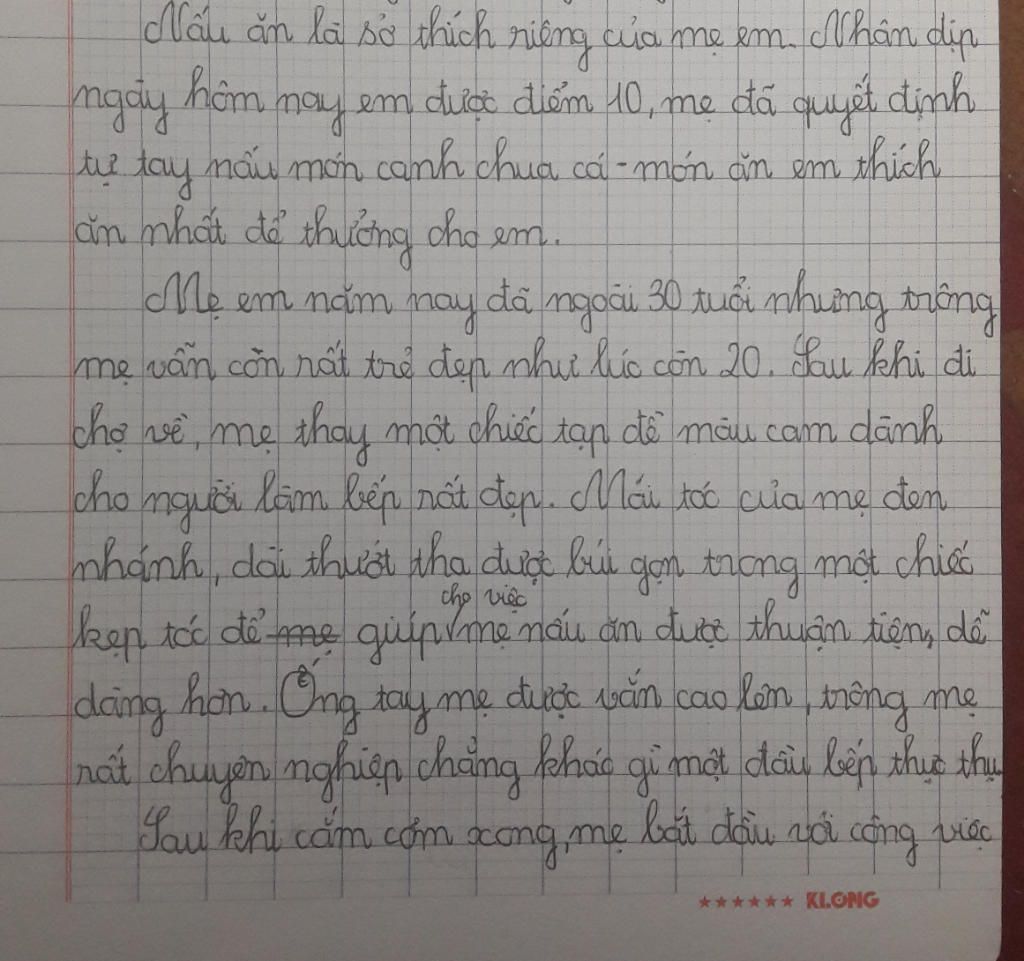 Nấu ăn là sở thích riêng của mẹ em. Nhân dịp
ngày hôm nay em được điểm 10, mẹ đã quyết định
tự tay nấu món canh chua cá - món ăn em thích
ăn nhất để thưởng cho em.
Mẹ em năm nay đã ngoài 30 tuổi nhưng trông
mẹ vẫn còn rất trẻ đẹp như lúc còn 20. Sau khi đi
chợ về, mẹ thay một chiếc tạp dề màu cam dành
cho người làm bếp rất đẹp. Mái tóc của mẹ đen
nhánh, dài thướt tha được búi gọn trong một chiếc
cho việc
kẹp tóc để mẹ giúp mẹ nấu ăn được thuận tiện, dễ
dàng hơn. Ống tay mẹ được vắn cao lên, trông mẹ
rất chuyên nghiệp chẳng khác gì một đầu bếp thực thụ
Sau khi cắm cơm xong, mẹ bắt đầu với công việc
★★★★★★ KLONG